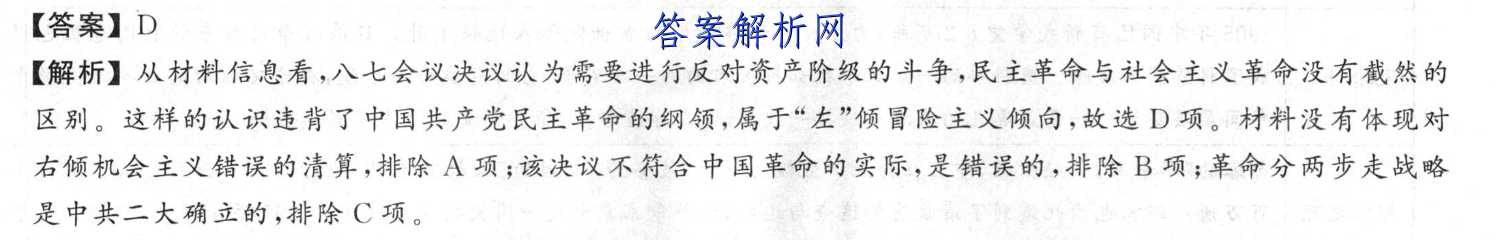 【答案】D
答案解析网
【解析】从材料信息看,八七会议决议认为需要进行反对资产阶级的斗争,民主革命与社会主义革命没有截然的
区别。这样的认识违背了中国共产党民主革命的纲领,属于“左”倾冒险主义倾向,故选 D 项。材料没有体现对
右倾机会主义错误的清算,排除 A 项;该决议不符合中国革命的实际,是错误的,排除 B 项;革命分两步走战略
是中共二大确立的,排除 C 项。